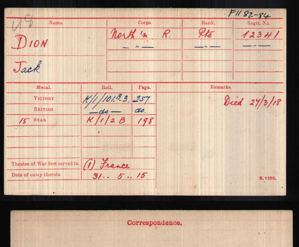 Name. Corps. Rank. Regtl. No.
DION North'n R. Pte 12341
Jack
Medal. Roll. Page. Remarks.
VICTORY K/1/101B3 257 Died 27/3/18
BRITISH do do
15 STAR K/1/2B 198
Theatre of War first served in (1) France
Date of entry therein 31. 5. 15
K. 1380.
Correspondence.